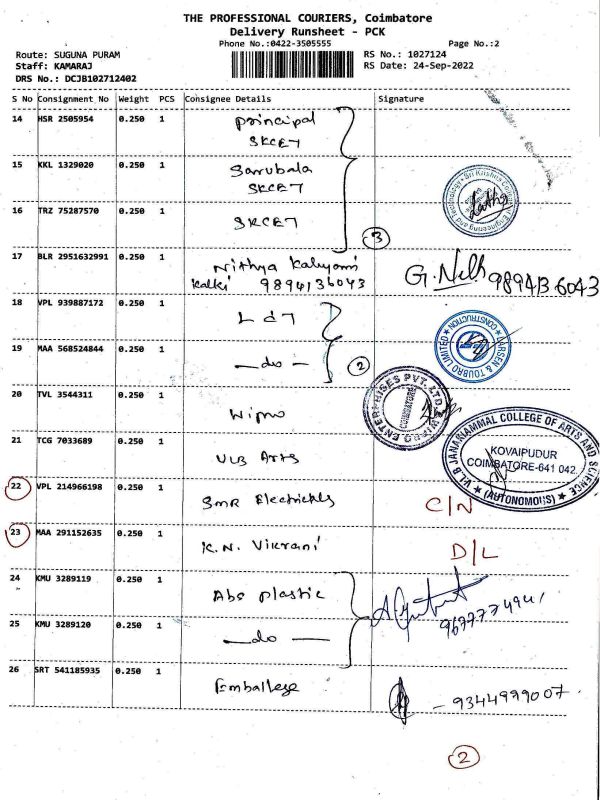 THE PROFESSIONAL COURIERS, Coimbatore
Delivery Runsheet - PCK
Phone No.:0422-3505555
Page No.:2
Route: SUGUNA PURAM
RS No.: 1027124
Staff: KAMARAJ
RS Date: 24-Sep-2022
DRS No.: DCJB102712402
S No Consignment No Weight PCS Consignee Details Signature
14 HSR 2505954 0.250 1 Principal
SKCET
15 KKL 1329020 0.250 1 Sarubala
SKCET
16 TRZ 75287570 0.250 1 SKCET
3
Sri Krishna College of Engineering and Technology
17 BLR 2951632991 0.250 1 Nithya Kalyani
Kalki 9894136043
9894136043
18 VPL 939887172 0.250 1 L & T
19 MAA 568524844 0.250 1 -do-
2
LARSEN & TOUBRO LIMITED CONSTRUCTION
20 TVL 3544311 0.250 1 Wipro
WIPRO ENTERPRISES PVT. LTD.
COIMBATORE
21 TCG 7033689 0.250 1 VLB Arts
V.L.B JANAKIAMMAL COLLEGE OF ARTS AND SCIENCE
KOVAIPUDUR
COIMBATORE-641 042.
(AUTONOMOUS)
22 VPL 214966198 0.250 1 SMR Electricals C/N
23 MAA 291152635 0.250 1 K.N. Vikrani D/L
24 KMU 3289119 0.250 1 Abs plastic
25 KMU 3289120 0.250 1 -do-
26 SRT 541185935 0.250 1 Emballege
- 9344999007
2